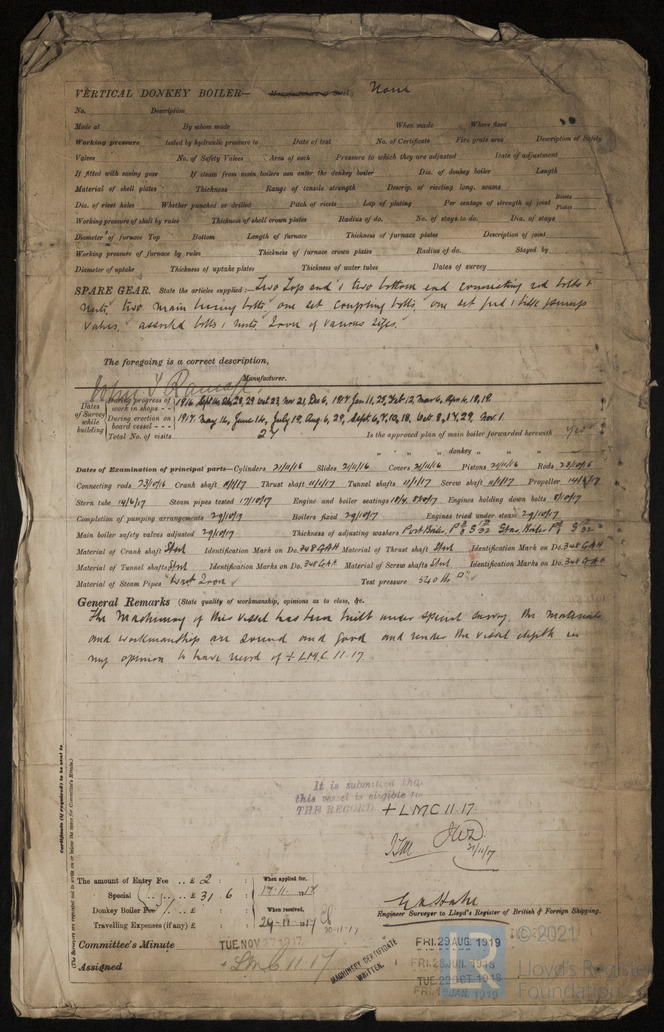 VERTICAL DONKEY BOILER— Manufacturers of Steel None
No. Description
Made at By whom made When made Where fixed
Working pressure tested by hydraulic pressure to Date of test No. of Certificate Fire grate area Description of Safety
Valves No. of Safety Valves Area of each Pressure to which they are adjusted Date of adjustment
If fitted with easing gear If steam from main boilers can enter the donkey boiler Dia. of donkey boiler Length
Material of shell plates Thickness Range of tensile strength Descrip. of riveting long. seams
Dia. of rivet holes Whether punched or drilled Pitch of rivets Lap of plating Per centage of strength of joint Rivets Plates
Working pressure of shell by rules Thickness of shell crown plates Radius of do. No. of stays to do. Dia. of stays
Diameter of furnace Top Bottom Length of furnace Thickness of furnace plates Description of joint
Working pressure of furnace by rules Thickness of furnace crown plates Radius of do. Stayed by
Diameter of uptake Thickness of uptake plates Thickness of water tubes Dates of survey
SPARE GEAR. State the articles supplied:— Two Top end & two bottom end connecting rod bolts &
nuts, two main bearing bolts, one set coupling bolts, one set feed & bilge pump
valves, assorted bolts & nuts, Iron of various sizes.
The foregoing is a correct description,
Manufacturer.
Dates of Survey while building
During progress of work in shops - - 1916. Sept
During erection on board vessel - - - 1917. May 16, June 14, July 19, Aug 6, 29, Sept. 6, 7, 10, 18, Oct 8, 17, 29, Nov 1
Total No. of visits 27 Is the approved plan of main boiler forwarded herewith Yes
" " " donkey " " "
Dates of Examination of principal parts—Cylinders 21/11/16 Slides 21/11/16 Covers 21/11/16 Pistons 21/11/16 Rods 23/10/16
Connecting rods 23/10/16 Crank shaft Thrust shaft 11/1/17 Tunnel shafts 11/1/17 Screw shaft 11/1/17 Propeller 14/6/17
Stern tube 14/6/17 Steam pipes tested 17/10/17 Engine and boiler seatings Engines holding down bolts 8/10/17
Completion of pumping arrangements 29/10/17 Boilers fixed 29/10/17 Engines tried under steam 29/10/17
Main boiler safety valves adjusted 29/10/17 Thickness of adjusting washers Port Boiler, P 3/8 S Star. Boiler P S
Material of Crank shaft Steel Identification Mark on Do. 348 GAH Material of Thrust shaft Steel Identification Mark on Do. 348 GAH
Material of Tunnel shafts Steel Identification Marks on Do. 348 GAH Material of Screw shafts Steel Identification Marks on Do. 348 GAH
Material of Steam Pipes Wrot Iron Test pressure 540 lb
General Remarks (State quality of workmanship, opinions as to class, &c.
The Machinery of this vessel has been built under special survey, the materials
and workmanship are sound and good and render the vessel in
my opinion to have record of + LMC 11.17.
It is submitted that
this vessel is eligible for
THE RECORD. + LMC 11.17.
21/11/17
Certificate (if required) to be sent to
(The Surveyors are requested not to write on or below the space for Committee's Minute.)
The amount of Entry Fee .. £ 2 : : When applied for,
Special .. £ 31 : 6 : 17.11.1917
Donkey Boiler Fee .. £ : : When received,
Travelling Expenses (if any) £ : : 1917
Engineer Surveyor to Lloyd's Register of British & Foreign Shipping.
Committee's Minute TUE. NOV 27 1917
Assigned + LMC 11.17
MACHINERY CERTIFICATE
WRITTEN.
FRI. 29 AUG. 1919
FRI. 28 JUN. 1918
TUE. 22 OCT 1918
JAN. 1919
LR
© 2021
Lloyd's Register
Foundation